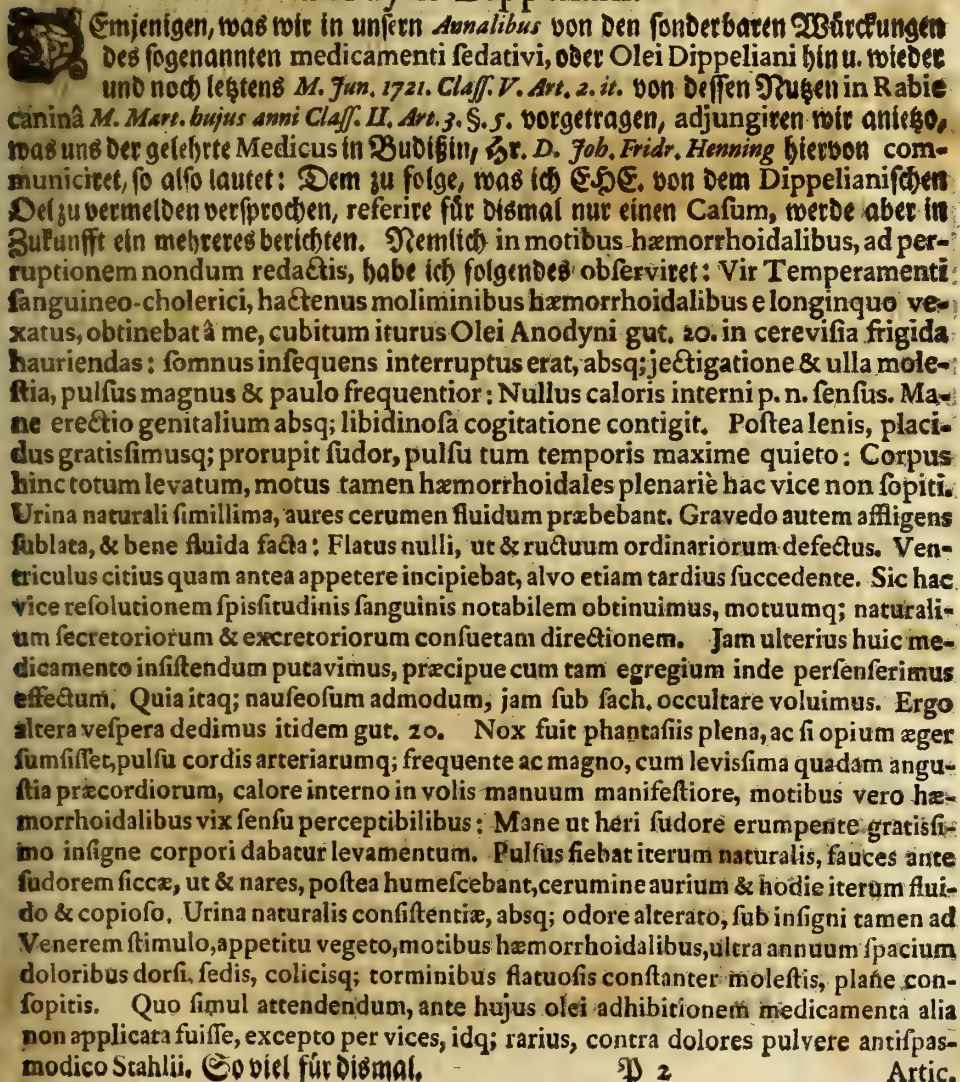 DEmjenigen, was wir in unsern Annalibus von den sonderbaren Würckungen
des sogenannten medicamenti sedativi, oder Olei Dippeliani hin u. wieder
und noch letztens M. Jun. 1721. Class. V. Art. 2. it. von dessen Nutzen in Rabie
caninâ M. Mart. hujus anni Class. II. Art. 3. §. 5. vorgetragen, adjungiren wir anietzo,
was uns der gelehrte Medicus in Budißin, Hr. D. Joh. Fridr. Henning hiervon com-
municiret, so also lautet: Dem zu folge, was ich E. HE. von dem Dippelianischen
Oel zu vermelden versprochen, referire für dismal nur einen Casum, werde aber in
Zukunfft ein mehreres berichten. Nemlich in motibus hæmorrhoidalibus, ad per-
ruptionem nondum redactis, habe ich folgendes observiret: Vir Temperamenti
sanguineo-cholerici, hactenus moliminibus hæmorrhoidalibus e longinquo ve-
xatus, obtinebat â me, cubitum iturus Olei Anodyni gut. 20. in cerevisia frigida
hauriendas: somnus insequens interruptus erat, absq; jectigatione & ulla mole-
stia, pulsus magnus & paulo frequentior: Nullus caloris interni p. n. sensus. Ma-
ne erectio genitalium absq; libidinosa cogitatione contigit. Postea lenis, placi-
dus gratissimusq; prorupit sudor, pulsu tum temporis maxime quieto: Corpus
hinc totum levatum, motus tamen hæmorrhoidales plenariè hac vice non sopiti.
Urina naturali simillima, aures cerumen fluidum præbebant. Gravedo autem affligens
sublata, & bene fluida facta: Flatus nulli, ut & ructuum ordinariorum defectus. Ven-
triculus citius quam antea appetere incipiebat, alvo etiam tardius succedente. Sic hac
vice resolutionem spissitudinis sanguinis notabilem obtinuimus, motuumq; naturali-
um secretoriorum & excretoriorum consuetam directionem. Jam ulterius huic me-
dicamento insistendum putavimus, præcipue cum tam egregium inde persenserimus
effectum. Quia itaq; nauseosum admodum, jam sub sach. occultare voluimus. Ergo
altera vespera dedimus itidem gut. 20. Nox fuit phantasiis plena, ac si opium æger
sumsisset, pulsu cordis arteriarumq; frequente ac magno, cum levissima quadam angu-
stia præcordiorum, calore interno in volis manuum manifestiore, motibus vero hæ-
morrhoidalibus vix sensu perceptibilibus: Mane ut heri sudore erumpente gratissi-
mo insigne corpori dabatur levamentum. Pulsus fiebat iterum naturalis, fauces ante
sudorem siccæ, ut & nares, postea humescebant, cerumine aurium & hodie iterum flui-
do & copioso. Urina naturalis consistentiæ, absq; odore alterato, sub insigni tamen ad
Venerem stimulo, appetitu vegeto, motibus hæmorrhoidalibus, ultra annuum spacium
doloribus dorsi, sedis, colicisq; torminibus flatuosis constanter molestis, plane con-
sopitis. Quo simul attendendum, ante hujus olei adhibitionem medicamenta alia
non applicata fuisse, excepto per vices, idq; rarius, contra dolores pulvere antispas-
modico Stahlii. So viel für dismal. P 2 Artic.